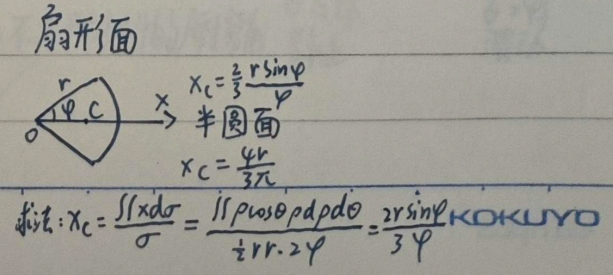 扇形面
r φ C x O
x_C = \frac{2}{3} \frac{r sinφ}{φ}
半圆面
x_C = \frac{4r}{3π}
求法: x_C = \frac{∫∫xdσ}{σ} = \frac{∫∫ρcosθρdρdθ}{\frac{1}{2}rr·2φ} = \frac{2r sinφ}{3φ} KOKUYO